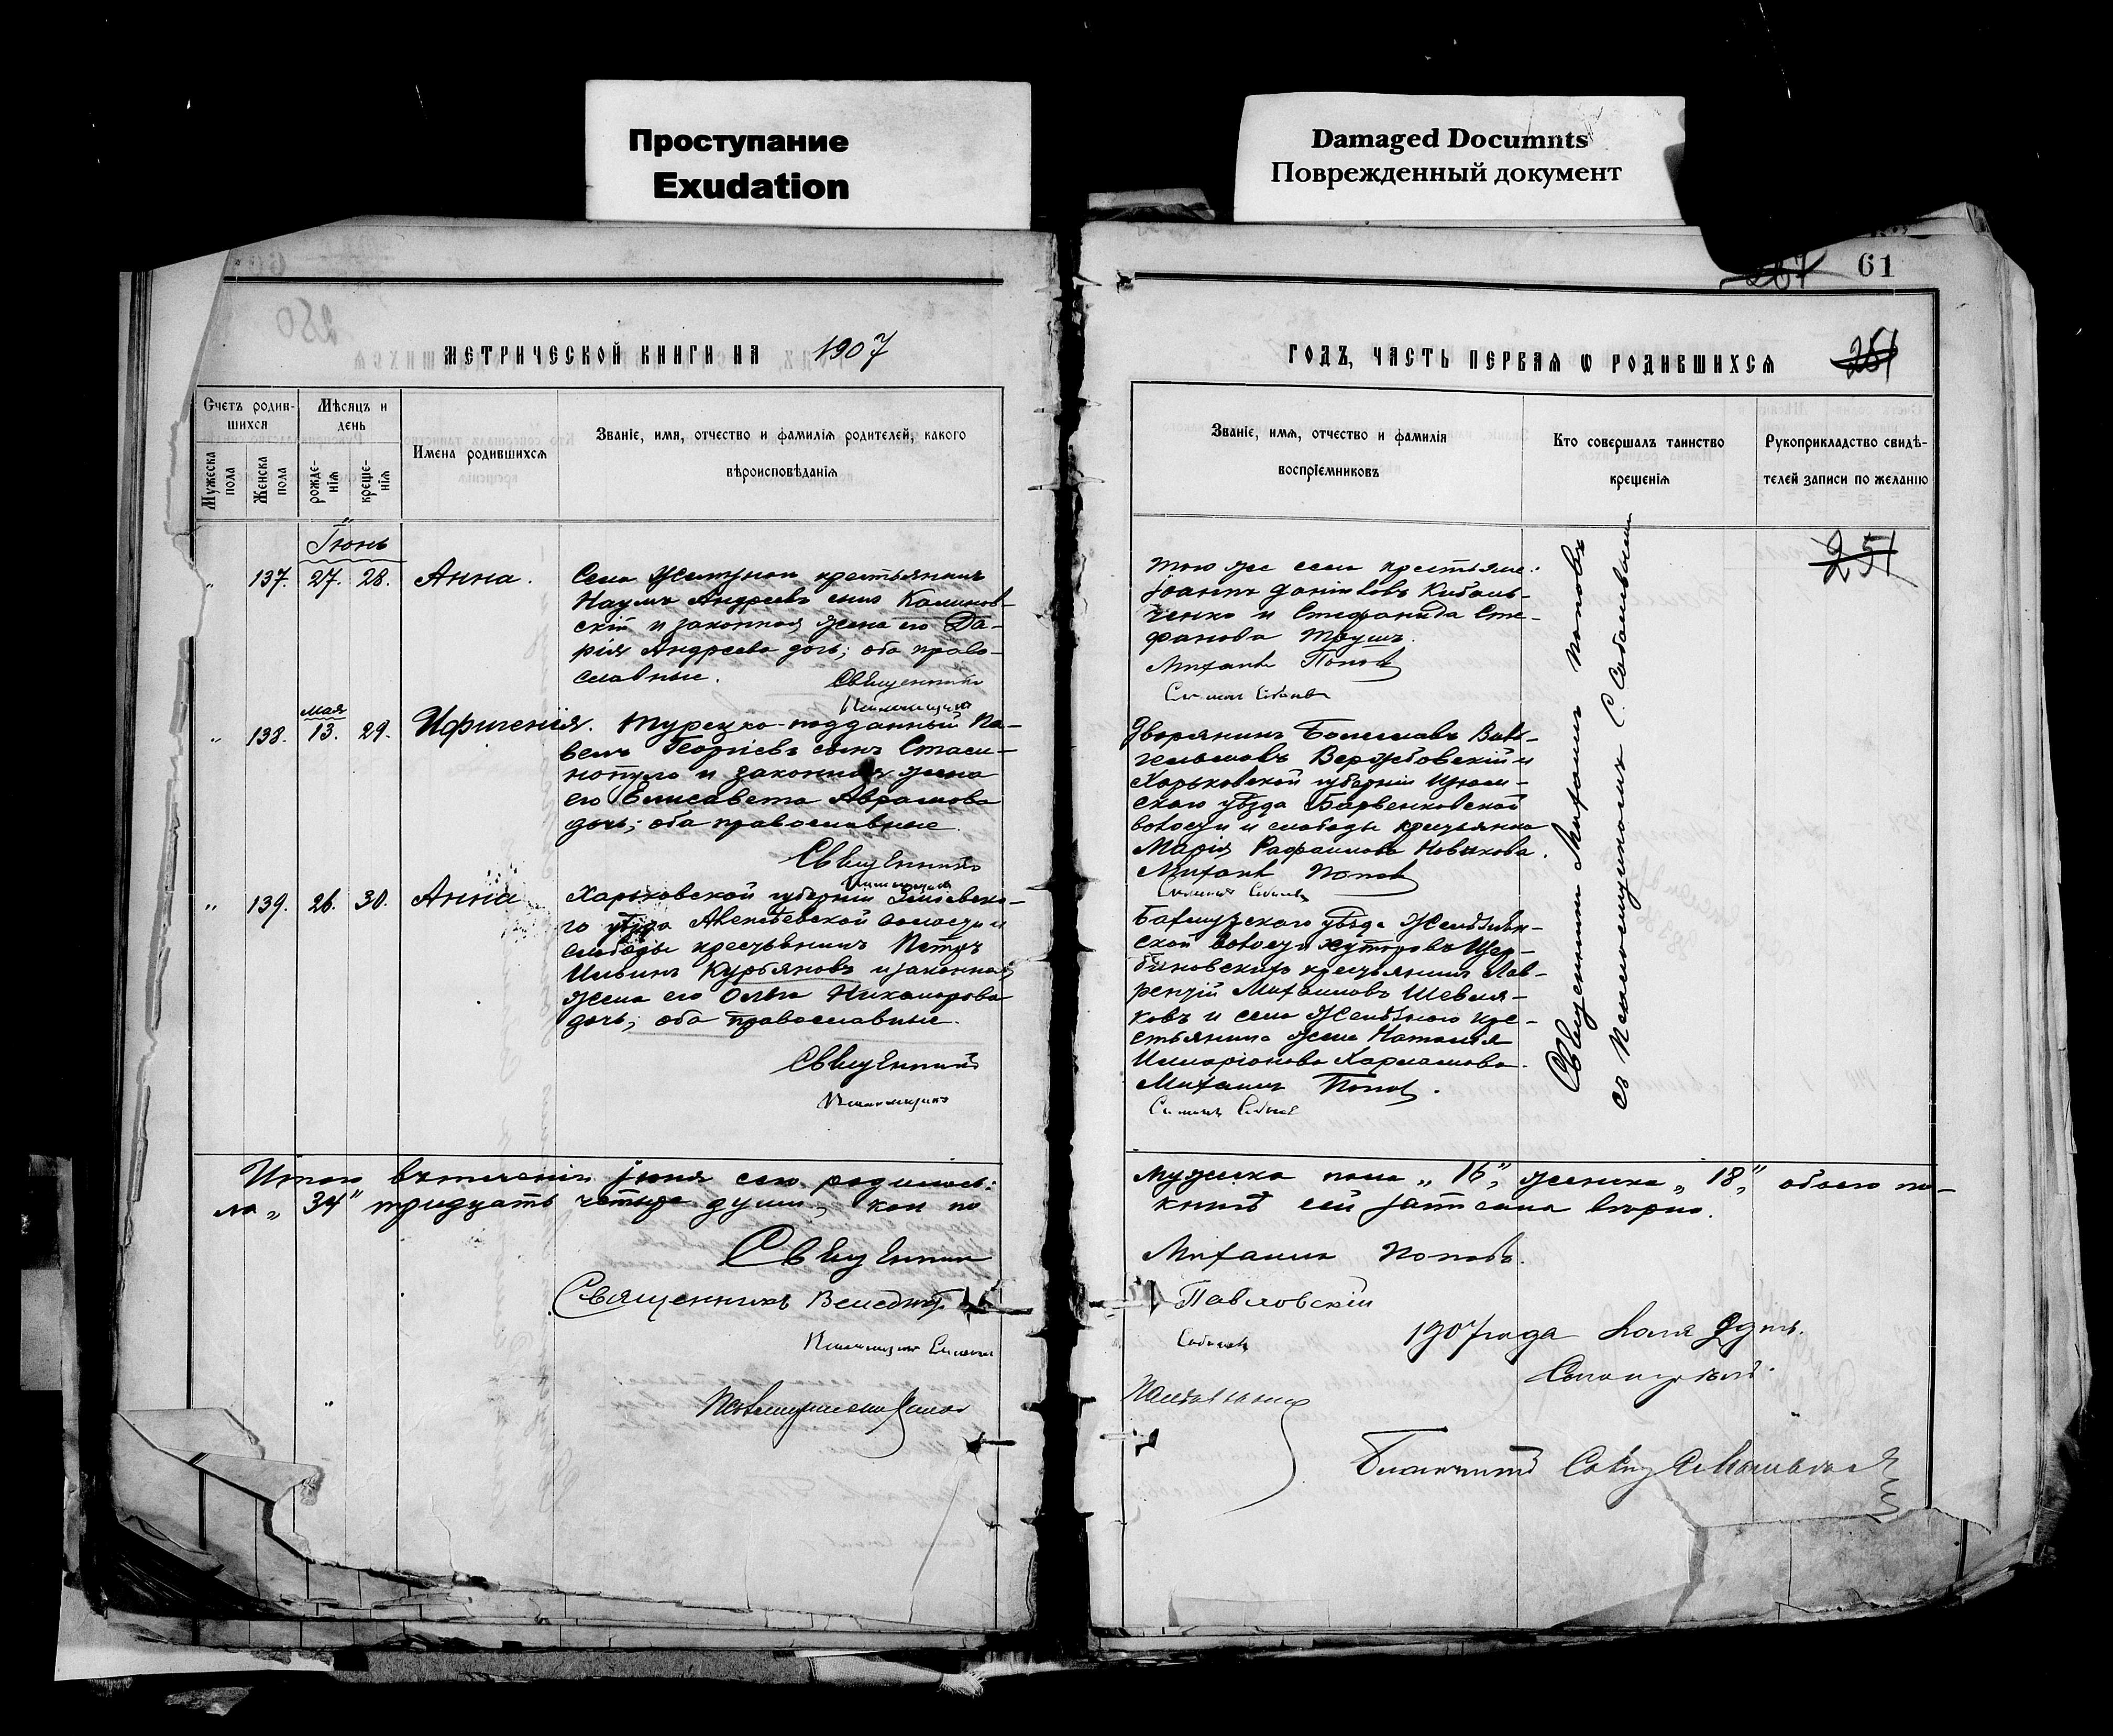 Проступание
Exudation
Damaged Documnts
Поврежденный документ
267 61
МЕТРИЧЕСКОЙ КНИГИ НА 1907
Счетъ родив-
шихся
Мужеска пола
Женска пола
Мѣсяцъ и
день
рожде-
нія
креще-
нія
Имена родившихся
Званіе, имя, отчество и фамилія родителей, какого
вѣроисповѣданія
Іюнь
" 137. 27. 28. Анна.
Села крестьянинъ
Наумъ Андреевъ сынъ Калинов-
скій и законная жена его Да-
рія Андреева дочь; оба право-
славные.
Священникъ
Псаломщикъ
мая
" 138. 13. 29. Ифигенія.
Турецко-подданный Па-
велъ Георгіевъ сынъ Стаси-
нопуло и законная жена
его Елисавета Аврамова
дочь; оба православные.
Священникъ
Псаломщикъ
" 139. 26. 30. Анна
Харьковской губерніи Зміевска-
го уѣзда Алексѣевской волости и
слободы крестьянинъ Петръ
Ильинъ Курьяновъ и законная
жена его Ольга Никанорова
дочь; оба православные.
Священникъ
Псаломщикъ
Итого въ теченіи іюня сего родилось:
ла "34" тридцать четыре души, кои по
Священникъ
Священникъ Венедиктъ
Псаломщикъ Симеонъ
ГОДЪ, ЧАСТЬ ПЕРВАЯ Ѡ РОДИВШИХСЯ 251
Званіе, имя, отчество и фамилія
воспріемниковъ
Кто совершалъ таинство
крещенія
Рукоприкладство свидѣ-
телей записи по желанію
251
того же села крестьяне:
Іоаннъ Даніиловъ Кибаль-
ченко и Стефанида Сте-
фанова
Михаилъ Поповъ
Дворянинъ Болеславъ Виль-
гельмовъ Вержбовскій и
Харьковской губерніи Изюм-
скаго уѣзда Барвенковской
волости и слободы крестьянка
Марія Рафаилова Новикова.
Михаилъ Поповъ
Бахмутскаго уѣзда Желѣзнян-
ской волости хуторовъ Щер-
биновскихъ крестьянинъ Лав-
рентій Михаиловъ Шевля-
ковъ и села Желѣзного кре-
стьянина жена Наталія
Иларіонова Харламова.
Михаилъ Поповъ.
Священникъ Михаилъ Поповъ
съ Псаломщикомъ С.
мужеска пола "16", женска "18", обоего по-
книгѣ сей записаны вѣрно.
Михаилъ Поповъ.
Павловскій
1907 года